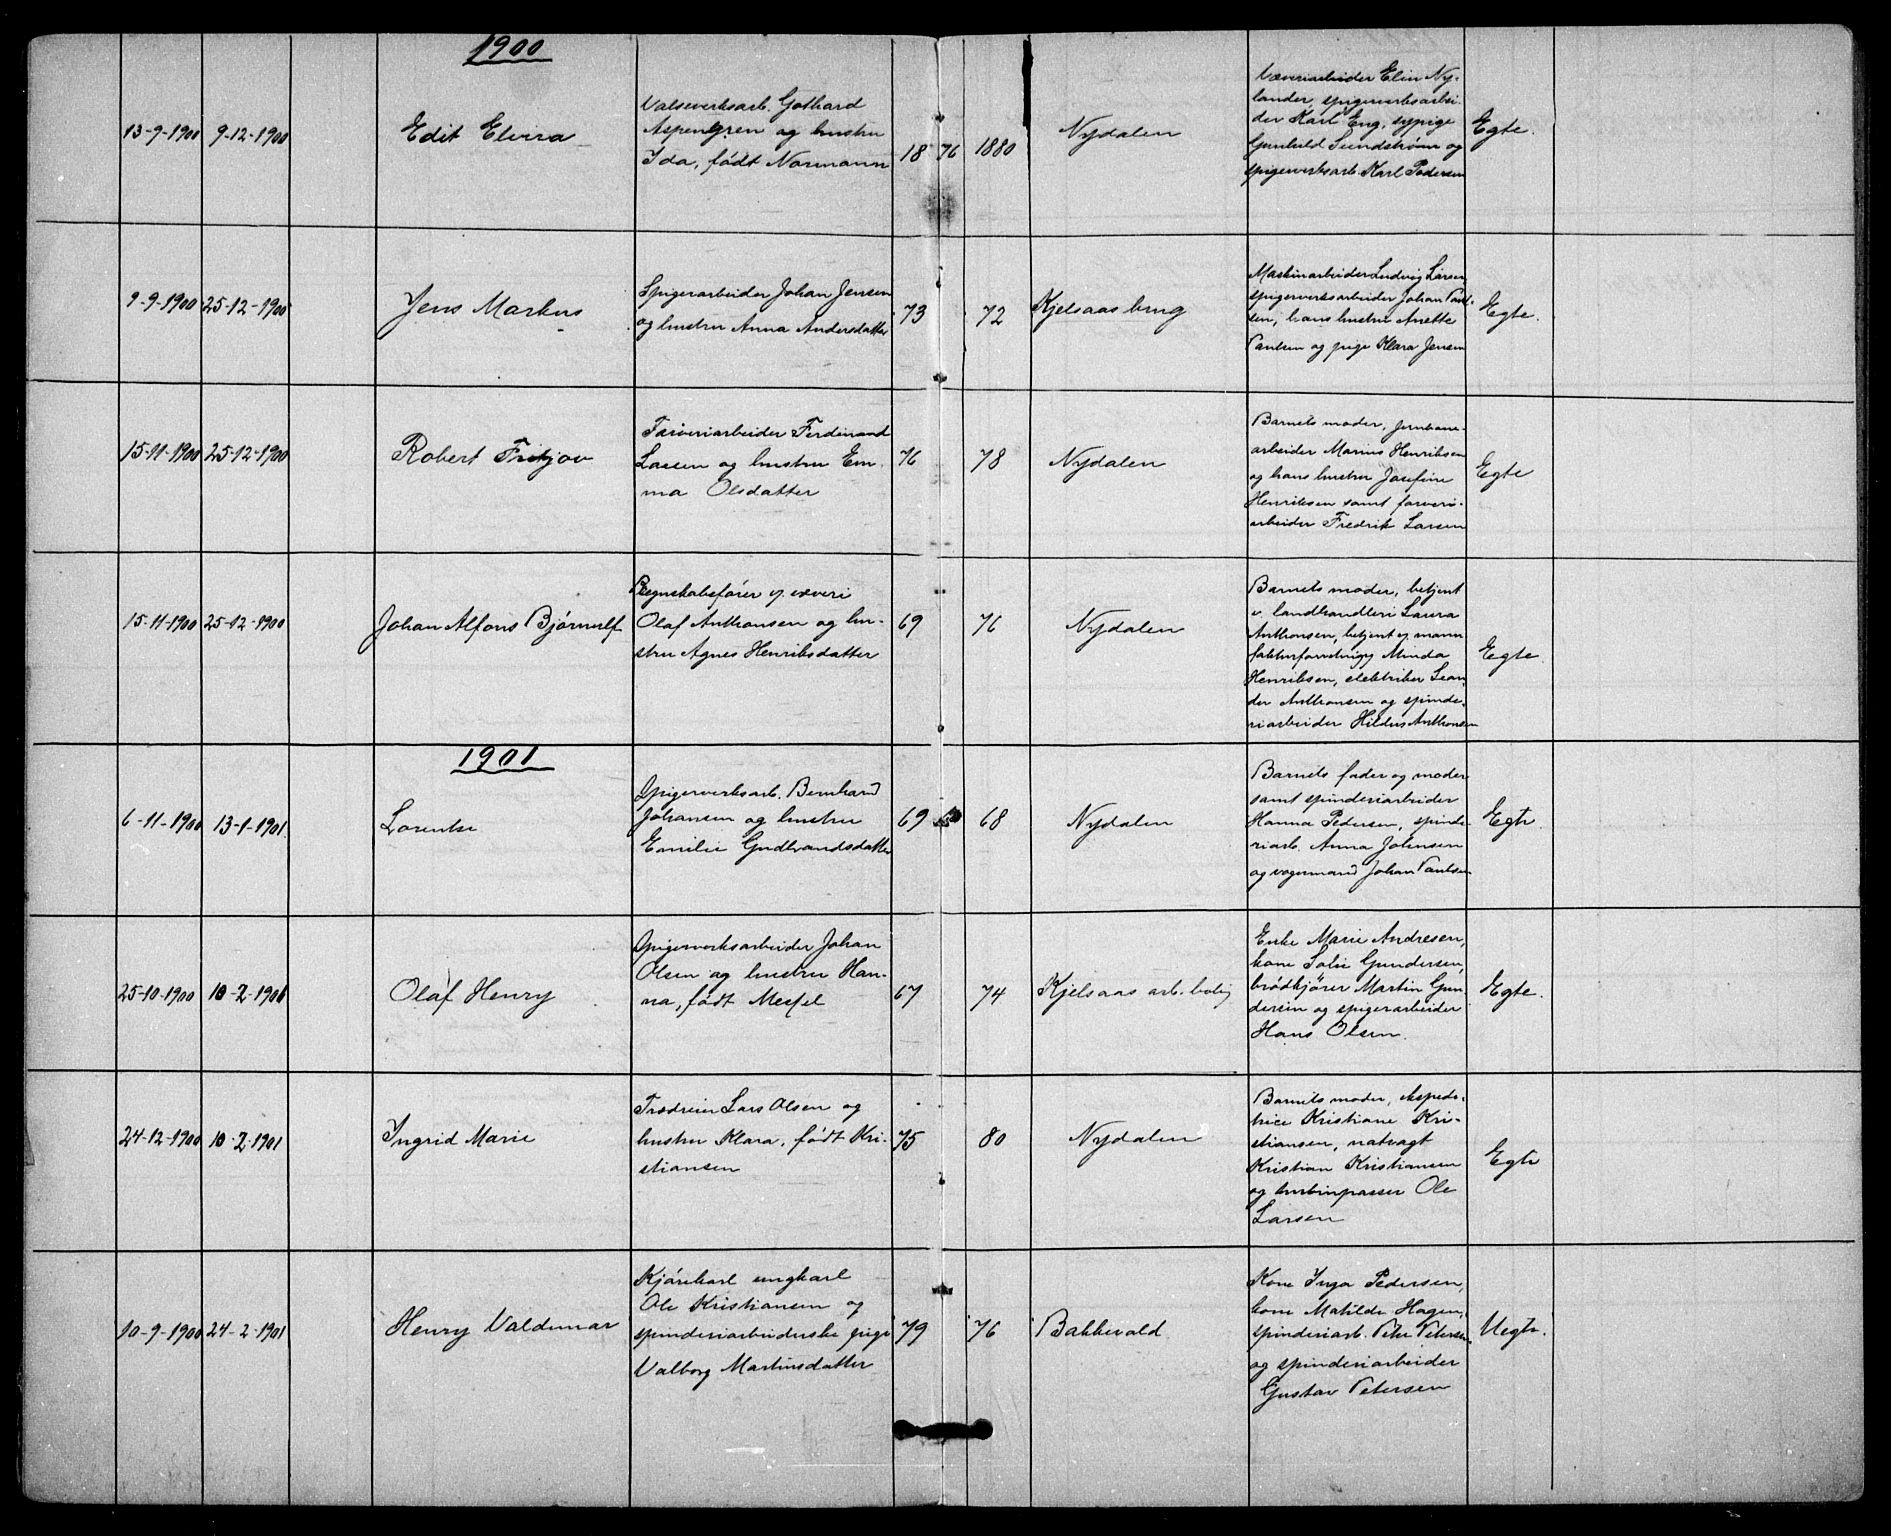 1900
13-9-1900 9-12-1900 Edit Elvira
Valseverksarb. Gothard
Aspengren og hustru
Ida, født Normann
18 76 1880 Nydalen
Væveriarbeider Elin Ny-
lander, spigerverksarbei-
der Karl Eng, sypige
Gunhild Sundstrøm og
spigerverksarb. Karl Pedersen
Egte.
9-9-1900 25-12-1900 Jens Markus
Spigerarbeider Johan Jensen
og hustru Anna Andersdatter
73 72 Kjelsaas brug
Maskinarbeider Ludvig Larsen,
spigerverksarbeider Johan Paul-
sen, hans hustru Anette
Paulsen og pige Klara Jensen
Egte.
15-11-1900 25-12-1900 Robert Fritjov
Farveriarbeider Ferdinand
Larsen og hustru Em-
ma Olsdatter
76 78 Nydalen
Barnets moder, jernbane-
arbeider Marius Henriksen
og hans hustru Josefine
Henriksen samt farveri-
arbeider Fredrik Larsen
Egte
15-11-1900 25-12-1900 Johan Alfons Bjørnulf
Regnskabsfører v. væveri
Olaf Anthonsen og hu-
stru Agnes Henriksdatter
69 76 Nydalen
Barnets moder, betjent
v. landhandleri Laura
Anthonsen, betjent v. manu
fakturforretning Minda
Henriksen, elektriker Lean-
der Anthonsen og spinde-
riarbeider Hildus Anthonsen
Egte
1901
6-11-1900 13-1-1901 Lorentse
Spigerverksarb. Bernhard
Johansen og hustru
Emilie Gudbrandsdatter
69 68 Nydalen
Barnets fader og moder
samt spinderiarbeider
Hanna Pedersen, spinde-
riarb. Anna Johnsen
og vognmand Johan Paulsen
Egte
25-10-1900 10-2-1901 Olaf Henry
Spigerverksarbeider Johan
Olsen og hustru Han-
na, født Messel
67 74 Kjelsaas arb. bolig
Enke Marie Andresen,
kone Sofie Gundersen,
brødkjører Martin Gun
dersen og spigerarbeider
Hans Olsen.
Egte.
24-12-1900 10-2-1901 Ingrid Marie
Trædreier Lars Olsen og
hustru Klara, født Kri-
stiansen
75 80 Nydalen
Barnets moder, ekspedi-
trice Kristiane Kri-
stiansen, natvagt
Kristian Kristiansen
og turbinpasser Ole
Larsen
Egte
10-9-1900 24-2-1901 Henry Valdemar
Kjørekarl ungkarl
Ole Kristiansen og
spinderiarbeiderske pige
Valborg Martinsdatter
79 76 Bakkevold.
Kone Inga Pedersen,
kone Matilde Hagen,
spinderiarb. Petersen
og spinderiarbeider
Gustav Petersen
Uegte.